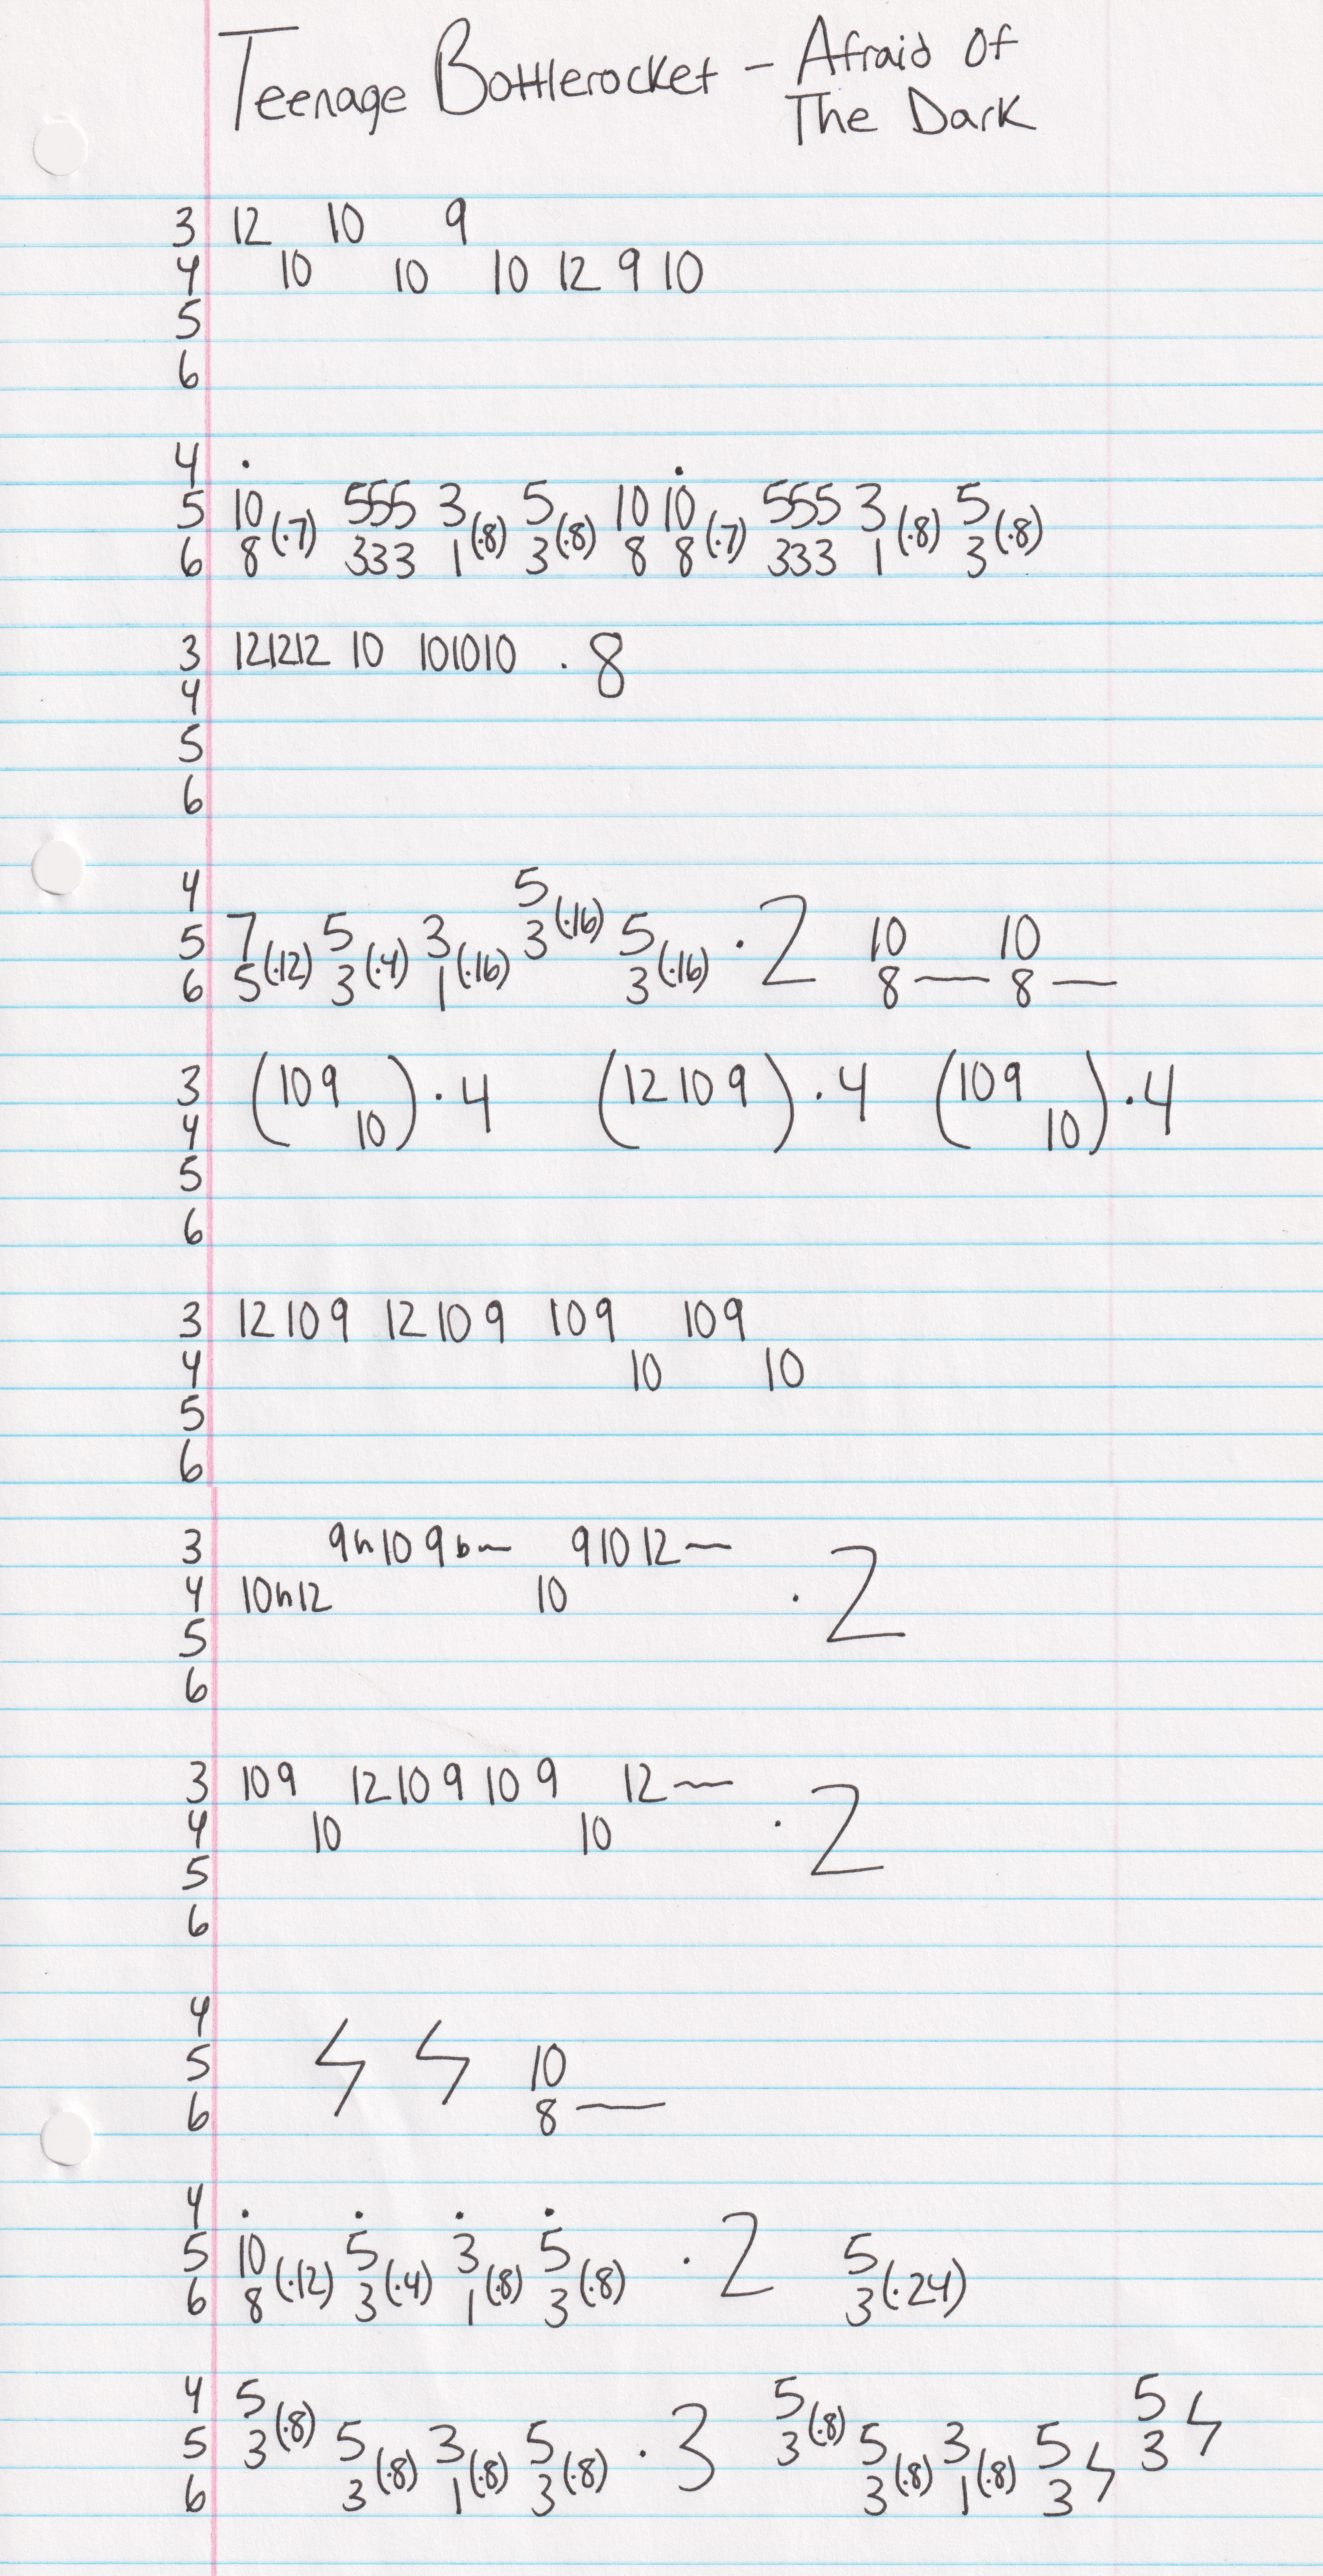 Teenage Bottlerocket - Afraid Of
The Dark
3 12 10 9
4 10 10 10 12 9 10
5
6
4 . .
5 10 555 3 5 10 10 555 3 5
(·7) (·8) (·8) (·7) (·8) (·8)
6 8 333 1 3 8 8 333 1 3
3 121212 10 101010 · 8
4
5
6
4 5
(·16)
5 7 5 3 3 5 · 2 10 10
(·12) (·4) (·16) (·16)
6 5 3 1 3 8 — 8 —
3 (10 9 ) · 4 (12 10 9) · 4 (10 9 ) · 4
4 10 10
5
6
3 12 10 9 12 10 9 10 9 10 9
4 10 10
5
6
3 9h10 9b~ 9 10 12~ · 2
4 10h12 10
5
6
3 10 9 12 10 9 10 9 12~ · 2
4 10 10
5
6
4
5 10
6 8 —
4 . . . .
5 10 5 3 5 · 2 5
(·12) (·4) (·8) (·8) (·24)
6 8 3 1 3 3
4 5 5 5
(·8) (·8)
5 3 5 3 5 · 3 3 5 3 5 3
(·8) (·8) (·8) (·8) (·8)
6 3 1 3 3 1 3